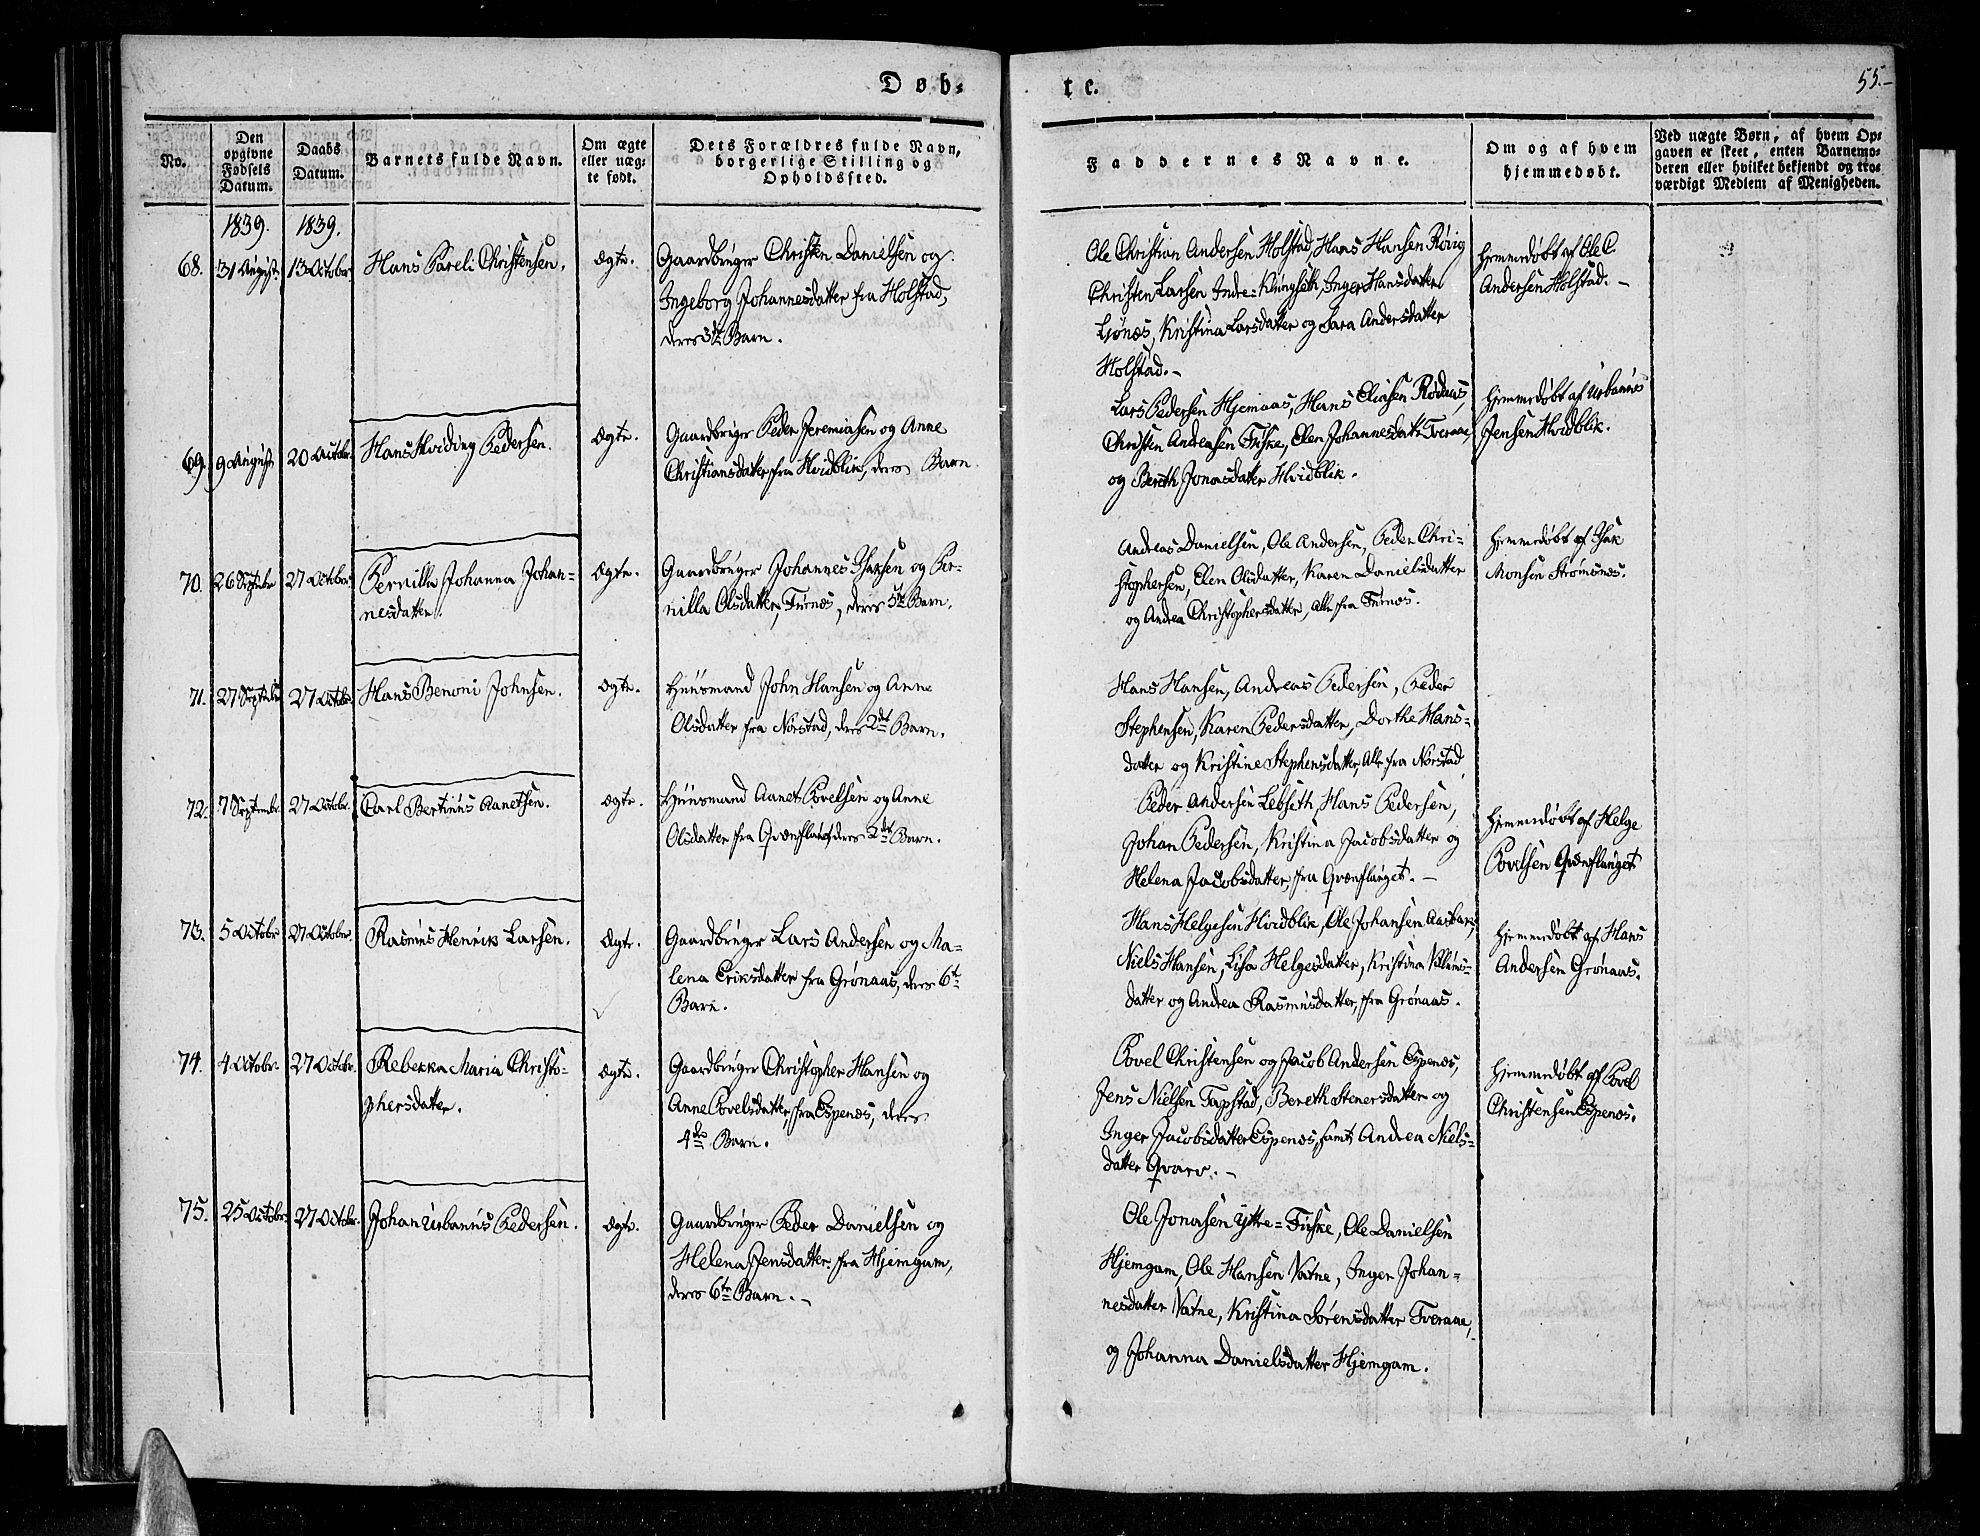 Døb-
te.
55.-
No.
Den opgivne Fødsels Datum.
Daabs Datum.
Barnets fulde Navn.
Om ægte eller uæg-te født.
Dets Forældres fulde Navn, borgerlige Stilling og Opholdssted.
Faddernes Navne.
Om og af hvem hjemmedøbt.
Ved uægte Børn, af hvem Op-gaven er skeet, enten Barnemo-deren eller hvilket bekjendt og tro-værdigt Medlem af Menigheden.
1839.
1839.
68.
31 August.
13 October
Hans Pareli Christensen.
Ægte.
Gaardbruger Christen Danielsen og
Ingeborg Johannesdatter fra Holstad,
deres 3die Barn.
Ole Christian Andersen Holstad, Hans Hansen Rövig
Christen Larsen Indre-Klungseth, Inger Hansdatter
Lönæs, Kristina Larsdatter og Sara Andersdatter
Holstad.-
Hjemmedøbt af Ole C.
Andersen Holstad.-
69.
9 August
20 Octobr.
Hans Hviding Pedersen.
Ægte.
Gaardbruger Peder Jeremiasen og Anne
Christiansdatter fra Hvidblik, deres Barn.
Lars Pedersen Hjemaas, Hans Eliasen Rödaas,
Christen Andersen Fuske, Elen Johannesdatt: Tveraae,
og Bereth Jonasdatter Hvidblik.
Hjemmedøbt af Urbanus
Jensen Hvidblik.
70.
26 Septbr
27 October
Pernilla Johanna Johan-
nesdatter.
Ægte.
Gaardbruger Johannes Isaksen og Per-
nilla Olsdatter, Furnes, deres 5te Barn.
Andreas Danielsen, Ole Andersen, Peder Chri-
stophersen, Elen Olsdatter, Karen Danielsdatter
og Andrea Christophersdatter, alle fra Furnes.
Hjemmedøbt af Isak
Monsen Strömsnes.
71.
27 Septembr
27 Octobr.
Hans Benoni Johnsen.
Ægte.
Huusmand John Hansen og Anne
Olsdatter fra Nørstad, deres 2det Barn.
Hans Hansen, Andreas Pedersen, Peder
Stephensen, Karen Pedersdatter, Dorthe Hans-
datter og Kristine Stephensdatter, Alle fra Nørstad.
72.
7 Septembr.
27 Octobr.
Carl Bertinus Aanetsen.
Ægte.
Huusmand Aanet Povelsen og Anne
Olsdatter fra Qvænflauget deres 2det Barn.
Peder Andersen Lebseth, Hans Pedersen,
Johan Pedersen, Kristina Jacobsdatter og
Helena Jacobsdatter, fra Qvænflauget.-
Hjemmedøbt af Helge
Povelsen Qvænflauget
73.
5 Octobr
27 October.
Rasmus Henrik Larsen.
Ægte.
Gaardbruger Lars Andersen og Ma-
lena Eriksdatter fra Grönaas, deres 6te
Barn.
Hans Helgesen Hvidblik, Ole Johansen Aasbak,
Niels Hansen, Lisa Helgesdatter, Kristina Villums-
datter og Andrea Rasmusdatter, fra Grönaas.
Hjemmedøbt af Hans
Andersen Grönaas.
74.
4 Octobr.
27 Octobr.
Rebekka Maria Christo-
phersdatter.
Ægte.
Gaardbruger Christopher Hansen og
Anne Povelsdatter, fra Espenes, deres
4de Barn.
Povel Christensen og Jacob Andersen Espenes,
Jens Nielsen Tapstad, Bereth Stenersdatter og
Inger Jacobsdatter Espenes, samt Andrea Niels-
datter Qvarv.-
Hjemmedøbt af Povel
Christensen Espenes.
75.
25 Octobr.
27 Octobr.
Johan Urbanus Pedersen.
Ægte.
Gaardbruger Peder Danielsen og
Helena Jensdatter fra Hjemgam,
deres 6te Barn.-
Ole Jonasen Ytre-Fuske, Ole Danielsen
Hjemgam, Ole Hansen Vatne, Inger Johan-
nesdatter Vatne, Kristina Sörensdatter Tveraae,
og Johanna Danielsdatter Hjemgam.